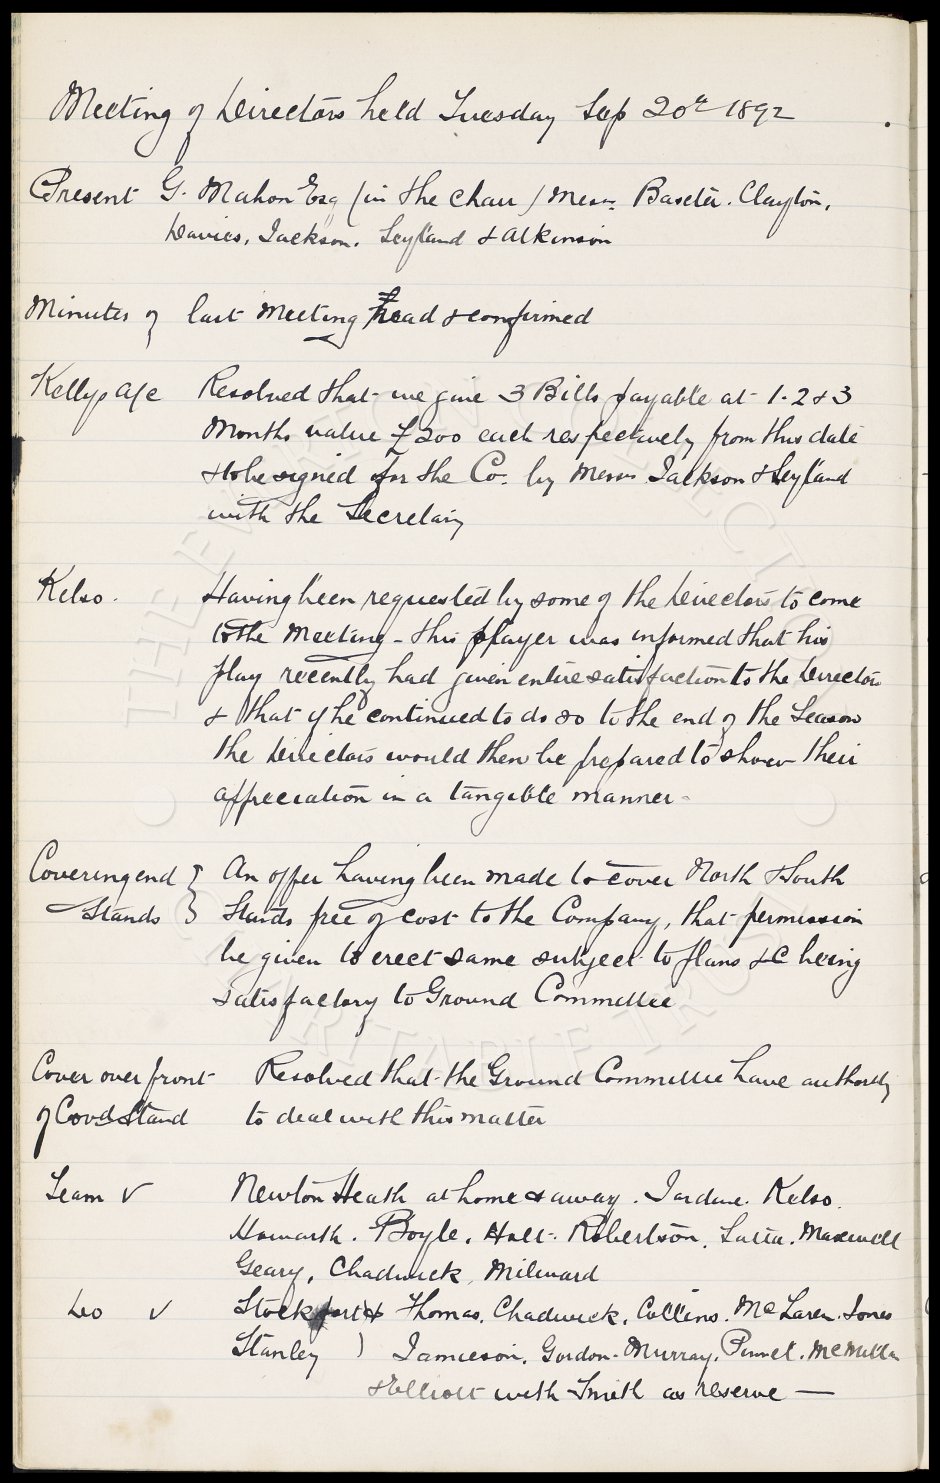 Meeting of Directors held Tuesday Sep 20th 1892
Present G. Mahon Esq (in the chair) Messrs Baxter. Clayton.
Davies, Jackson. Leyland & Atkinson
Minutes of last Meeting read & confirmed
Kellys a/c Resolved that we give 3 Bills payable at 1. 2 & 3
Months value £200 each respectively from this date
& to be signed for the Co. by Messrs Jackson & Leyland
with the Secretary
Kelso. Having been requested by some of the Directors to come
to the Meeting - this player was informed that his
play recently had given entire satisfaction to the Directors
& that if he continued to do so to the end of the Season
the Directors would then be prepared to show their
appreciation in a tangible manner -
Covering end An offer having been made to cover North & South
Stands Stands free of cost to the Company, that permission
be given to erect same subject to plans &c being
satisfactory to Ground Committee
Cover over front Resolved that the Ground Committee have authority
of Covd Stand to deal with this matter
Team v Newton Heath at home & away. Jardine. Kelso.
Howarth. Boyle, Holt. Robertson. Latta. Maxwell
Geary, Chadwick, Milward
Do v Stockport & Thomas. Chadwick. Collins. McLaren. Jones
Stanley ) Jamieson. Gordon. Murray. Pinnel. McMillan
& Elliott with Smith as reserve —
THE EVERTON COLLECTION
CHARITABLE TRUST